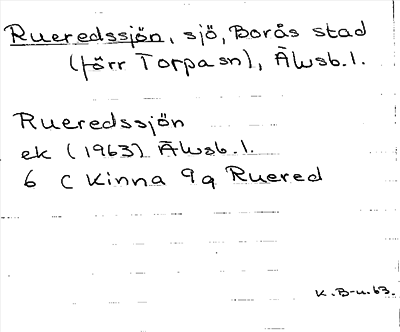 Rueredssjön, sjö, Borås stad
(förr Torpa sn), Älvsb. l.
Rueredssjön
ek (1963) Älvsb. l.
6 C Kinna 9 q Ruered
K. B-u. 63.